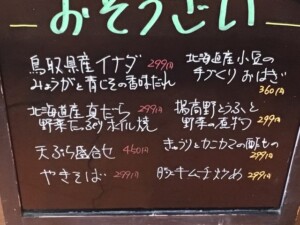 おそうざい
鳥取県産イナダ 299円
みょうがと青じその香味だれ
北海道産真だら 299円
野菜たっぷりホイル焼
天ぷら盛合せ 460円
やきそば 299円
北海道産小豆の
手づくりおはぎ
360円
揚高野とうふと
野菜の煮物 299円
きゅうりとカニカマの酢もの
299円
豚キムチ炒め 299円